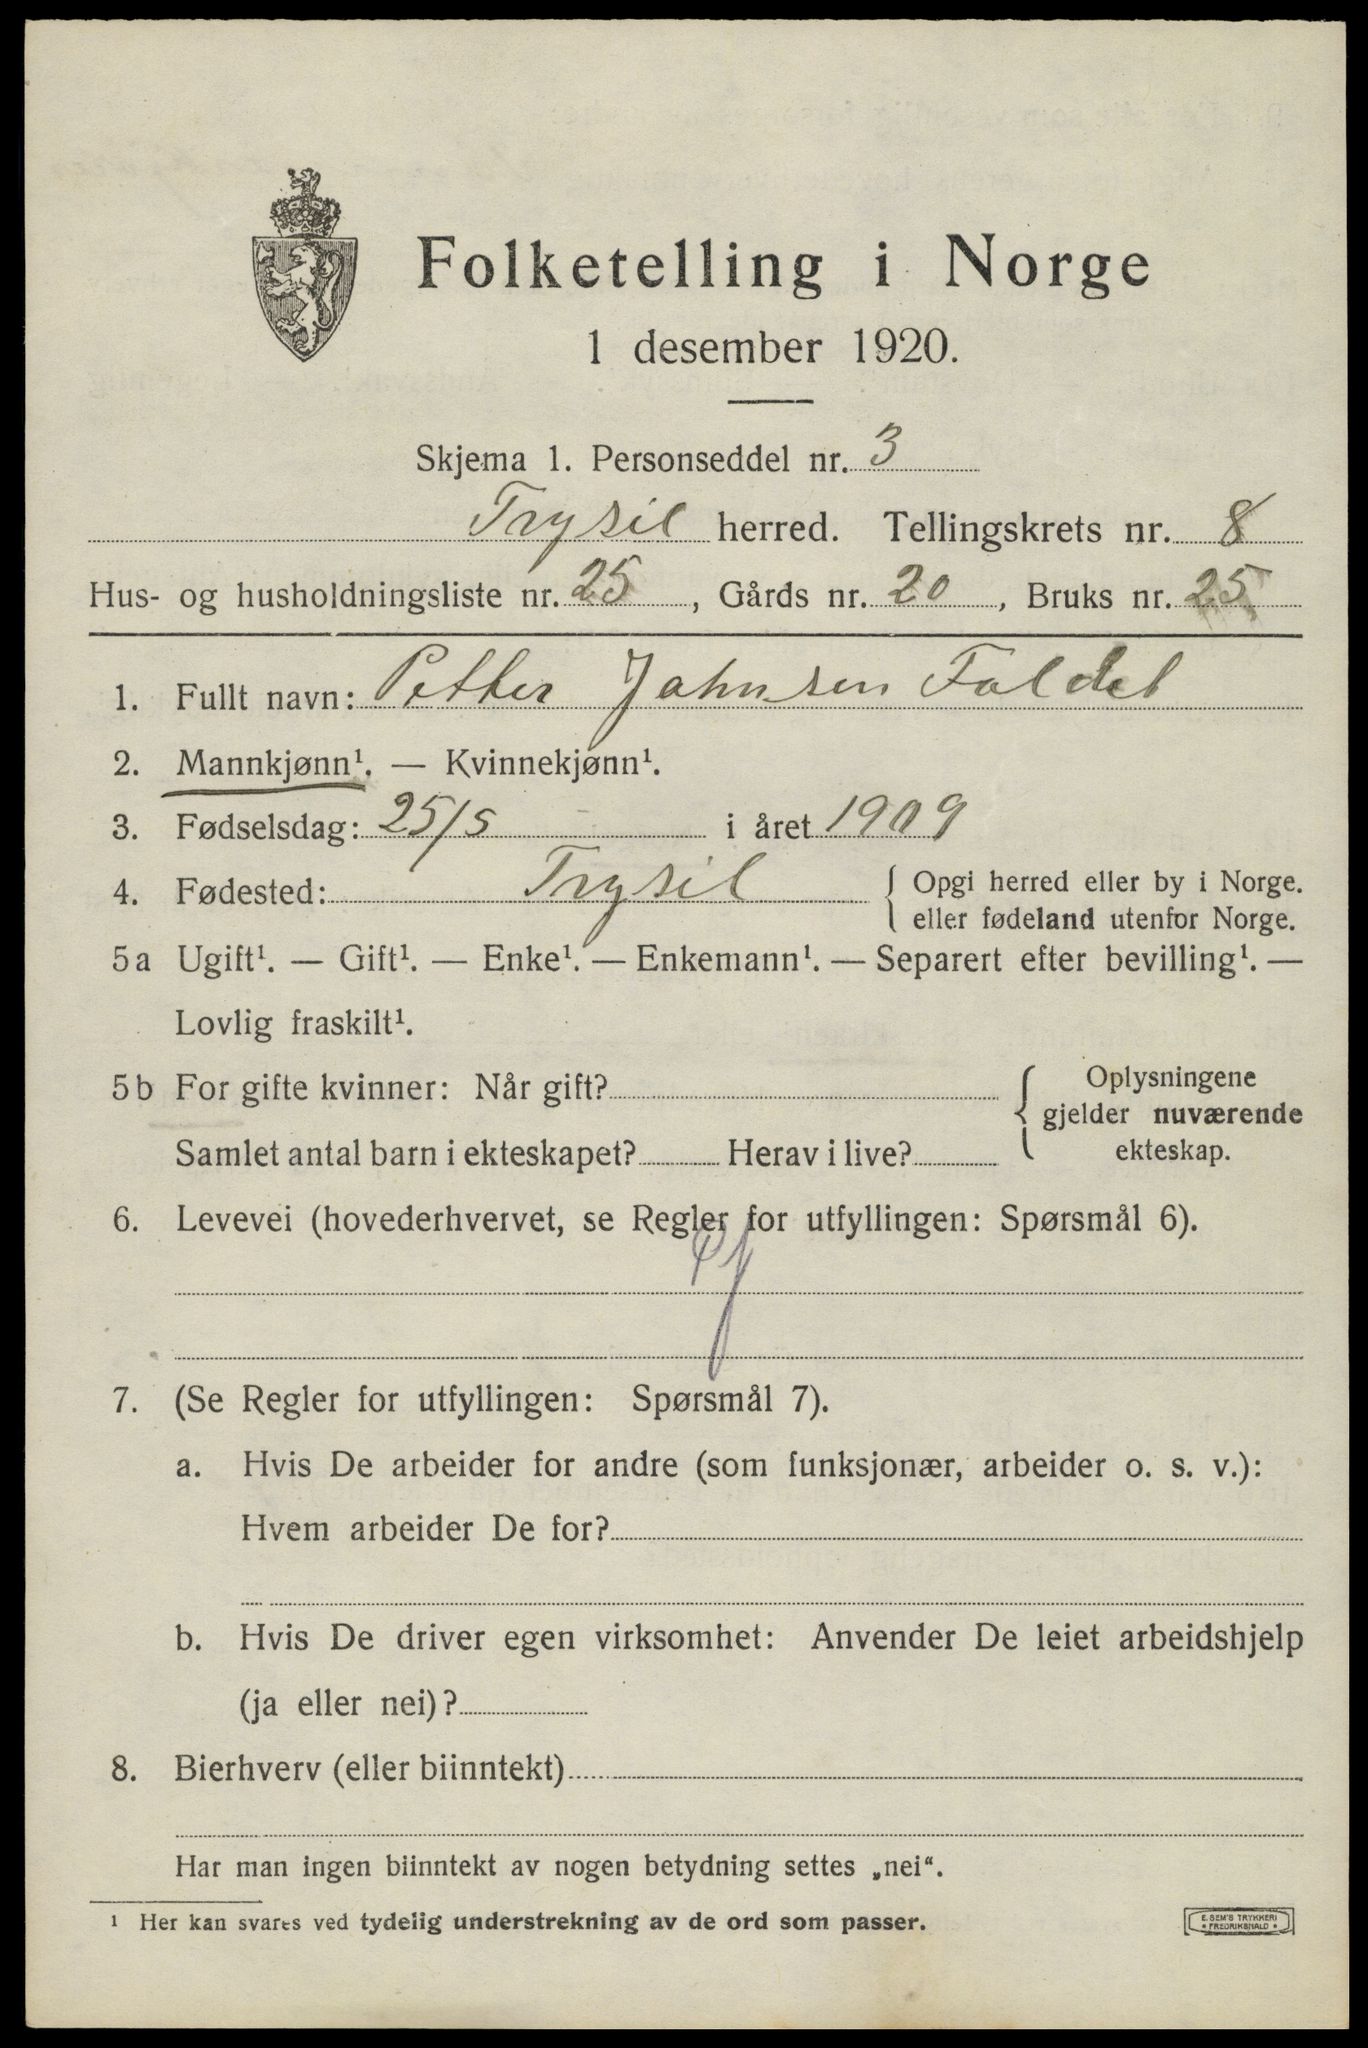 Folketelling i Norge
1 desember 1920.
Skjema 1. Personseddel nr. 3
Trysil herred. Tellingskrets nr. 8
Hus- og husholdningsliste nr. 25, Gårds nr. 20, Bruks nr. 25
1. Fullt navn: Petter Johnsen Faldet
2. Mannkjønn¹. — Kvinnekjønn¹.
3. Fødselsdag: 25/5 i året 1909
4. Fødested: Trysil { Opgi herred eller by i Norge.
eller fødeland utenfor Norge.
5a Ugift¹. — Gift¹. — Enke¹. — Enkemann¹. — Separert efter bevilling¹. —
Lovlig fraskilt¹.
5b For gifte kvinner: Når gift? { Oplysningene
gjelder nuværende
Samlet antal barn i ekteskapet? Herav i live? ekteskap.
6. Levevei (hovederhvervet, se Regler for utfyllingen: Spørsmål 6).
7. (Se Regler for utfyllingen: Spørsmål 7).
a. Hvis De arbeider for andre (som funksjonær, arbeider o. s. v.):
Hvem arbeider De for?
b. Hvis De driver egen virksomhet: Anvender De leiet arbeidshjelp
(ja eller nei)?
8. Bierhverv (eller biinntekt)
Har man ingen biinntekt av nogen betydning settes „nei“.
¹ Her kan svares ved tydelig understrekning av de ord som passer.
E. SEM'S TRYKKERI
* FREDRIKSHALD *